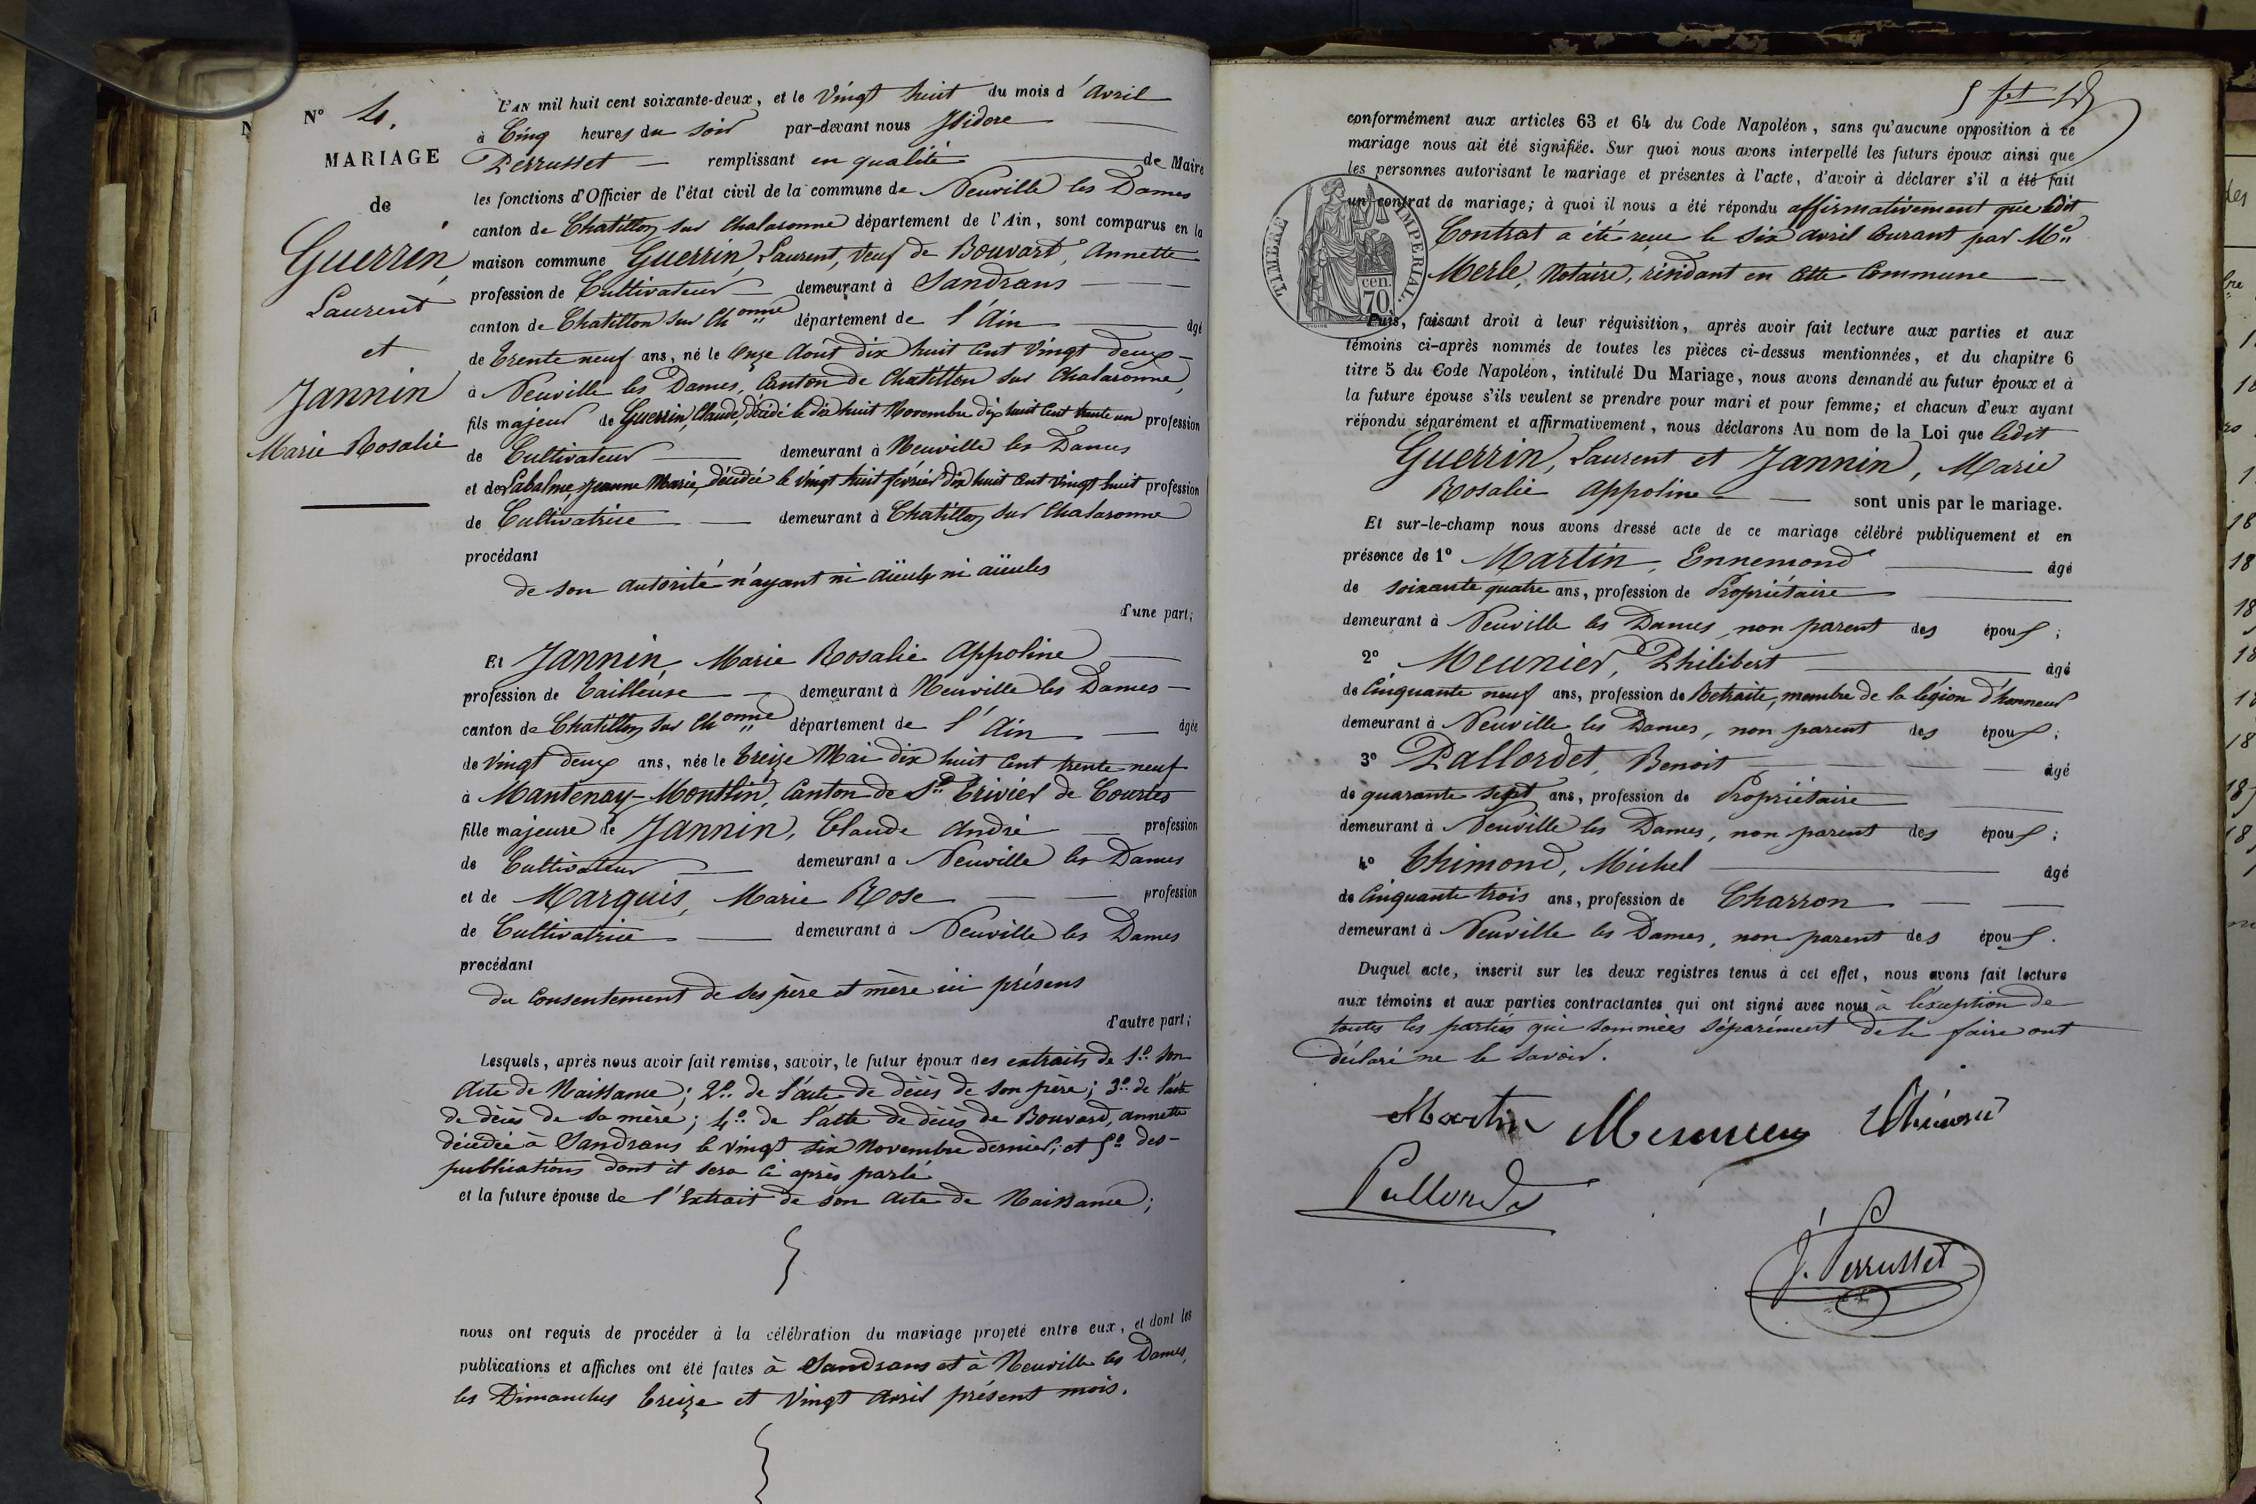 N° 4.
MARIAGE
de
Guerrin,
Laurent
et
Jannin
Marie Rosalie
L'AN mil huit cent soixante-deux, et le Vingt huit du mois d'Avril
à Cinq heures du soir par-devant nous Isidore
Perrusset remplissant en qualité de Maire
les fonctions d'Officier de l'état civil de la commune de Neuville les Dames
canton de Chatillon sur Chalaronne département de l'Ain, sont comparus en la
maison commune Guerrin, Laurent, Veuf de Bouvard, Annette
profession de Cultivateur demeurant à Sandrans
canton de Chatillon sur Chonne département de l'Ain âgé
de Trente neuf ans, né le Onze Août dix huit cent Vingt deux
à Neuville les Dames, Canton de Chatillon sur Chalaronne,
fils majeur de Guerrin, Claude, décédé le dix huit Novembre dix huit cent trente un profession
de Cultivateur demeurant à Neuville les Dames
et de Labalme, Jeanne Marie, décédée le Vingt huit février dix huit cent vingt huit profession
de Cultivatrice demeurant à Chatillon sur Chalaronne
procédant
de son autorité n'ayant ni aïeulx ni aïeules
d'une part;
Et Jannin, Marie Rosalie Appoline
profession de Tailleuse demeurant à Neuville les Dames
canton de Chatillon sur Chonne département de l'Ain âgée
de Vingt deux ans, née le Treize Mai dix huit cent trente neuf
à Mantenay-Montlin, Canton de St Trivier de Courtes
fille majeure de Jannin, Claude André profession
de Cultivateur demeurant à Neuville les Dames
et de Marquis, Marie Rose profession
de Cultivatrice demeurant à Neuville les Dames
procédant
du Consentement de ses père et mère ici présens
d'autre part;
Lesquels, après nous avoir fait remise, savoir, le futur époux des extraits de 1° son
Acte de Naissance; 2° de l'acte de décès de son père; 3° de l'acte
de décès de sa mère; 4° de l'acte de décès de Bouvard, annette
décédée à Sandrans le vingt six Novembre dernier; et 5° des
publications dont il sera ci après parlé
et la future épouse de l'Extrait de son Acte de Naissance;
nous ont requis de procéder à la célébration du mariage projeté entre eux, et dont les
publications et affiches ont été faites à Sandrans et à Neuville les Dames,
les Dimanches Treize et Vingt Avril présent mois.
conformément aux articles 63 et 64 du Code Napoléon, sans qu'aucune opposition à ce
mariage nous ait été signifiée. Sur quoi nous avons interpellé les futurs époux ainsi que
les personnes autorisant le mariage et présentes à l'acte, d'avoir à déclarer s'il a été fait
un contrat de mariage; à quoi il nous a été répondu affirmativement que ledit
Contrat a été reçu le six avril Courant par Me
Merle, Notaire, résidant en cette Commune
TIMBRE IMPERIAL
70 cen.
Puis, faisant droit à leur réquisition, après avoir fait lecture aux parties et aux
témoins ci-après nommés de toutes les pièces ci-dessus mentionnées, et du chapitre 6
titre 5 du Code Napoléon, intitulé Du Mariage, nous avons demandé au futur époux et à
la future épouse s'ils veulent se prendre pour mari et pour femme; et chacun d'eux ayant
répondu séparément et affirmativement, nous déclarons Au nom de la Loi que ledit
Guerrin, Laurent et Jannin, Marie
Rosalie Appoline sont unis par le mariage.
Et sur-le-champ nous avons dressé acte de ce mariage célébré publiquement et en
présence de 1° Martin, Ennemond âgé
de soixante quatre ans, profession de Propriétaire
demeurant à Neuville les Dames, non parent des époux;
2° Meunier, Philibert âgé
de Cinquante neuf ans, profession de Retraite, membre de la légion d'honneur
demeurant à Neuville les Dames, non parent des époux;
3° Pallordet, Benoit âgé
de quarante sept ans, profession de Propriétaire
demeurant à Neuville les Dames, non parent des époux;
4° Thimond, Michel âgé
de Cinquante trois ans, profession de Charron
demeurant à Neuville les Dames, non parent des époux.
Duquel acte, inscrit sur les deux registres tenus à cet effet, nous avons fait lecture
aux témoins et aux parties contractantes qui ont signé avec nous à l'exception de
toutes les parties qui sommées séparément de le faire ont
déclaré ne le savoir.
Martin Meunier Thimond
Pallordet
J. Perrusset